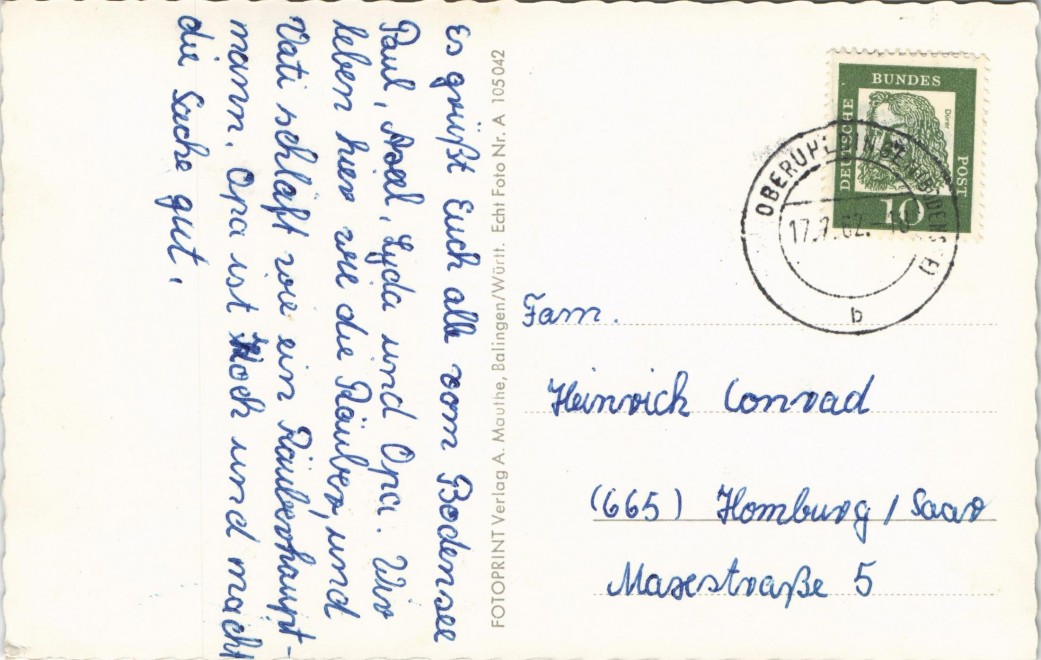 Es grüßt Euch alle vom Bodensee
Paul, Axel, Lyda und Opa. Wir
leben hier wie die Räuber, und
Vati schläft wie ein Räuberhaupt-
mann. Opa ist Koch und macht
die Sache gut.
FOTOPRINT Verlag A. Mauthe, Balingen/Württ. Echt Foto Nr. A 105042
DEUTSCHE
BUNDES
POST
Dürer
10
17.7.62. 18
b
Fam.
Heinrich Conrad
(665) Homburg / Saar
Maxestraße 5